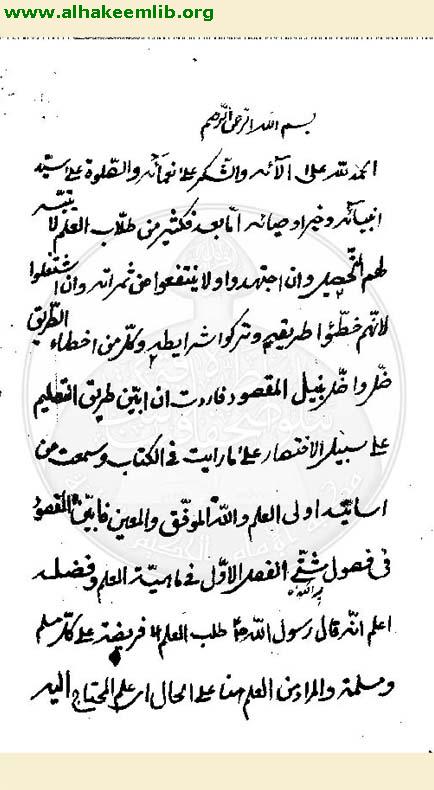 www.alhakeemlib.org
بسم الله الرحمن الرحيم
الحمد لله على آلائه والشكر على نعمائه والصلوة على سيد
انبيائه وخير اوصيائه اما بعد فكثير من طلاب العلم لا يتيسر
لهم التحصيل وان اجتهدوا ولا ينتفعوا من ثمراته وان اشتغلوا
لانهم خطئوا طريقه وتركوا شرايطه وكل من اخطاء الطريق
ضل وا ضل بنيل المقصود فاردت ان ابين طريق التعليم
على سبيل الاختصار على ما رايت في الكتاب وسمعت من
اساتيد اولى العلم والله الموفق والمعين فابين المقصود
فى فصول شتى الفصل الاول فى ماهية العلم وفضله
اعلم انه قال رسول الله طلب العلم فريضة على كل مسلم
ومسلمة والمراد من العلم هنا على الحال اى علم المحتاج اليه